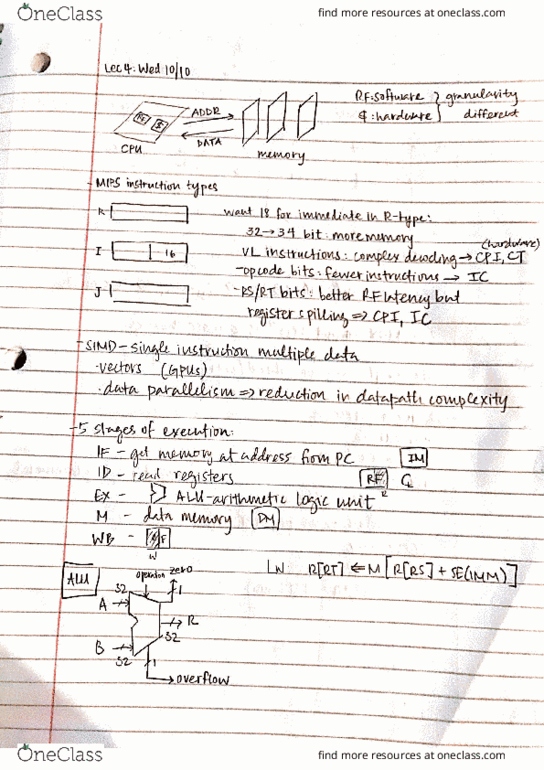 OneClass
find more resources at oneclass.com
Lec 4: Wed 10/10
RF: software } granularity
$: hardware } different
ADDR
DATA
CPU
memory
- MIPS instruction types
R
want 18 for immediate in R-type:
32→34 bit: more memory
(hardware)
I 16
VL instructions: complex decoding → CPI, CT
-opcode bits: fewer instructions → IC
J
-RS/RT bits: better RF latency but
register spilling ⇒ CPI, IC
-SIMD - single instruction multiple data
·vectors (GPUs)
·data parallelism ⇒ reduction in datapath complexity
-5 stages of execution:
IF - get memory at address from PC IM
ID - read registers RF
R
EX - ALU - arithmetic logic unit
M - data memory DM
WB -
W
LW: R[RT] ⇐ M[R[RS] + SE(IMM)]
ALU
operation
zero
32
1
A
R
32
B
32
1
overflow
OneClass
find more resources at oneclass.com